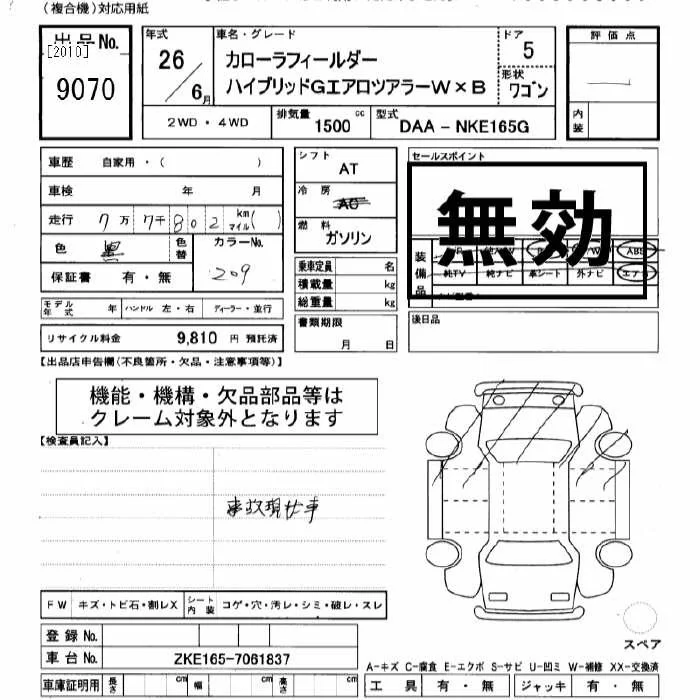 (複合機)対応用紙
出品No.
[2010]
9070
年式
26/6月
車名・グレード
カローラフィールダー
ハイブリッドGエアロツアラーW×B
ドア
5
形状
ワゴン
評価点
内装
2WD・4WD
排気量
1500 cc
型式
DAA-NKE165G
車歴 自家用・( )
車検 年 月
走行 7万7千802 km マイル( )
色 黒
色替
カラーNo.
209
保証書 有・無
モデル年式 年 ハンドル 左・右 ディーラー・並行
リサイクル料金 9,810 円 預託済
シフト
AT
冷房
AC
燃料
ガソリン
乗車定員 名
積載量 kg
総重量 kg
書類期限
月 日
セールスポイント
無効
装備品
ABS
純TV 純ナビ 革シート 外ナビ エアB
後日品
【出品店申告欄(不良箇所・欠品・注意事項等)】
機能・機構・欠品部品等は
クレーム対象外となります
【検査員記入】
事故現状車
FW キズ・トビ石・割レX
シート内装 コゲ・穴・汚レ・シミ・破レ・スレ
登録No.
車台No. ZKE165-7061837
車庫証明用 長さ cm 幅 cm 高さ cm
スペア
A-キズ C-腐食 E-エクボ S-サビ U-凹ミ W-補修 XX-交換済
工具 有・無 ジャッキ 有・無